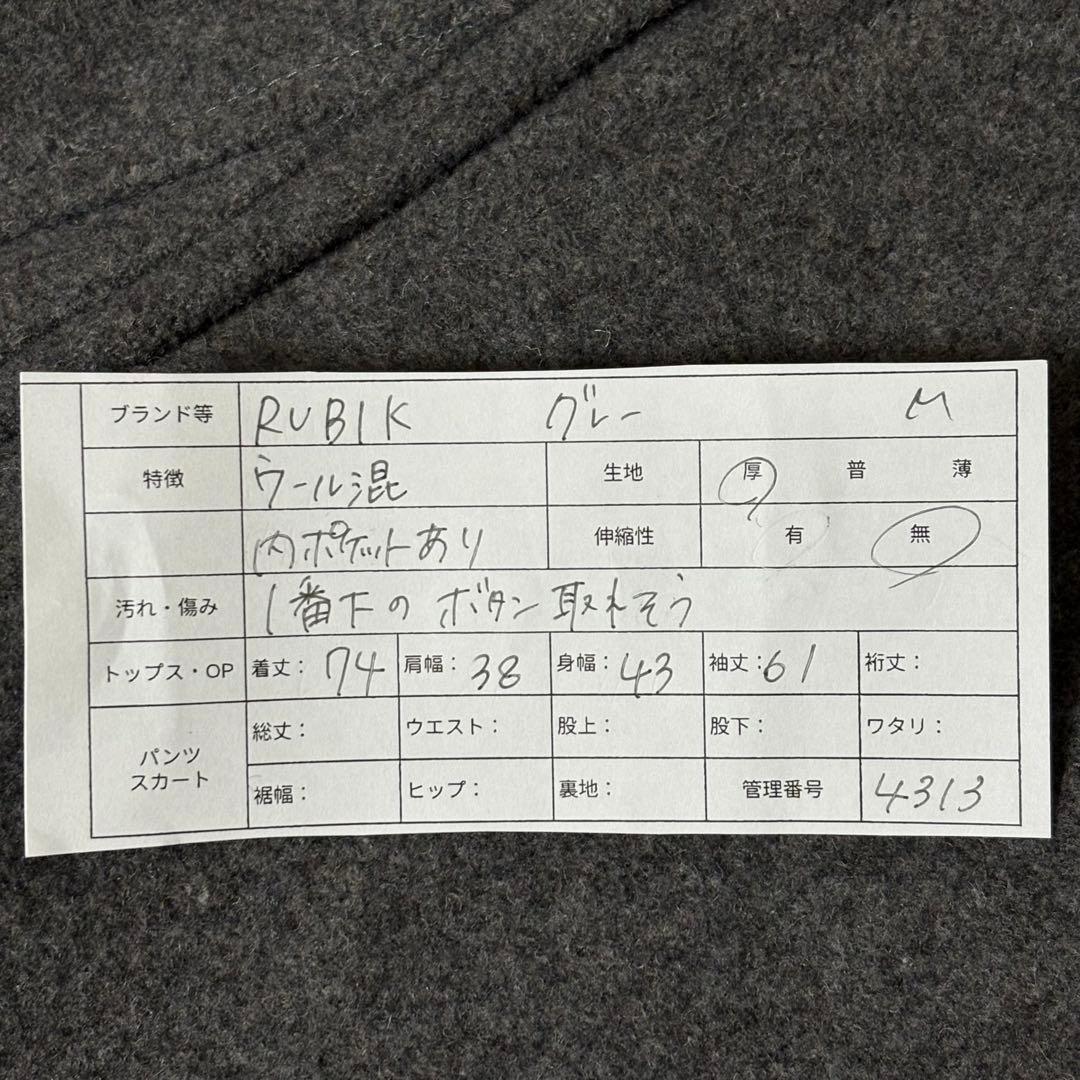 ブランド等 RUBIK グレー M
特徴 ウール混 生地 厚 普 薄
内ポケットあり 伸縮性 有 無
汚れ・傷み 1番下のボタン取れそう
トップス・OP 着丈: 74 肩幅: 38 身幅: 43 袖丈: 61 裄丈:
パンツ スカート 総丈: ウエスト: 股上: 股下: ワタリ:
裾幅: ヒップ: 裏地: 管理番号 4313